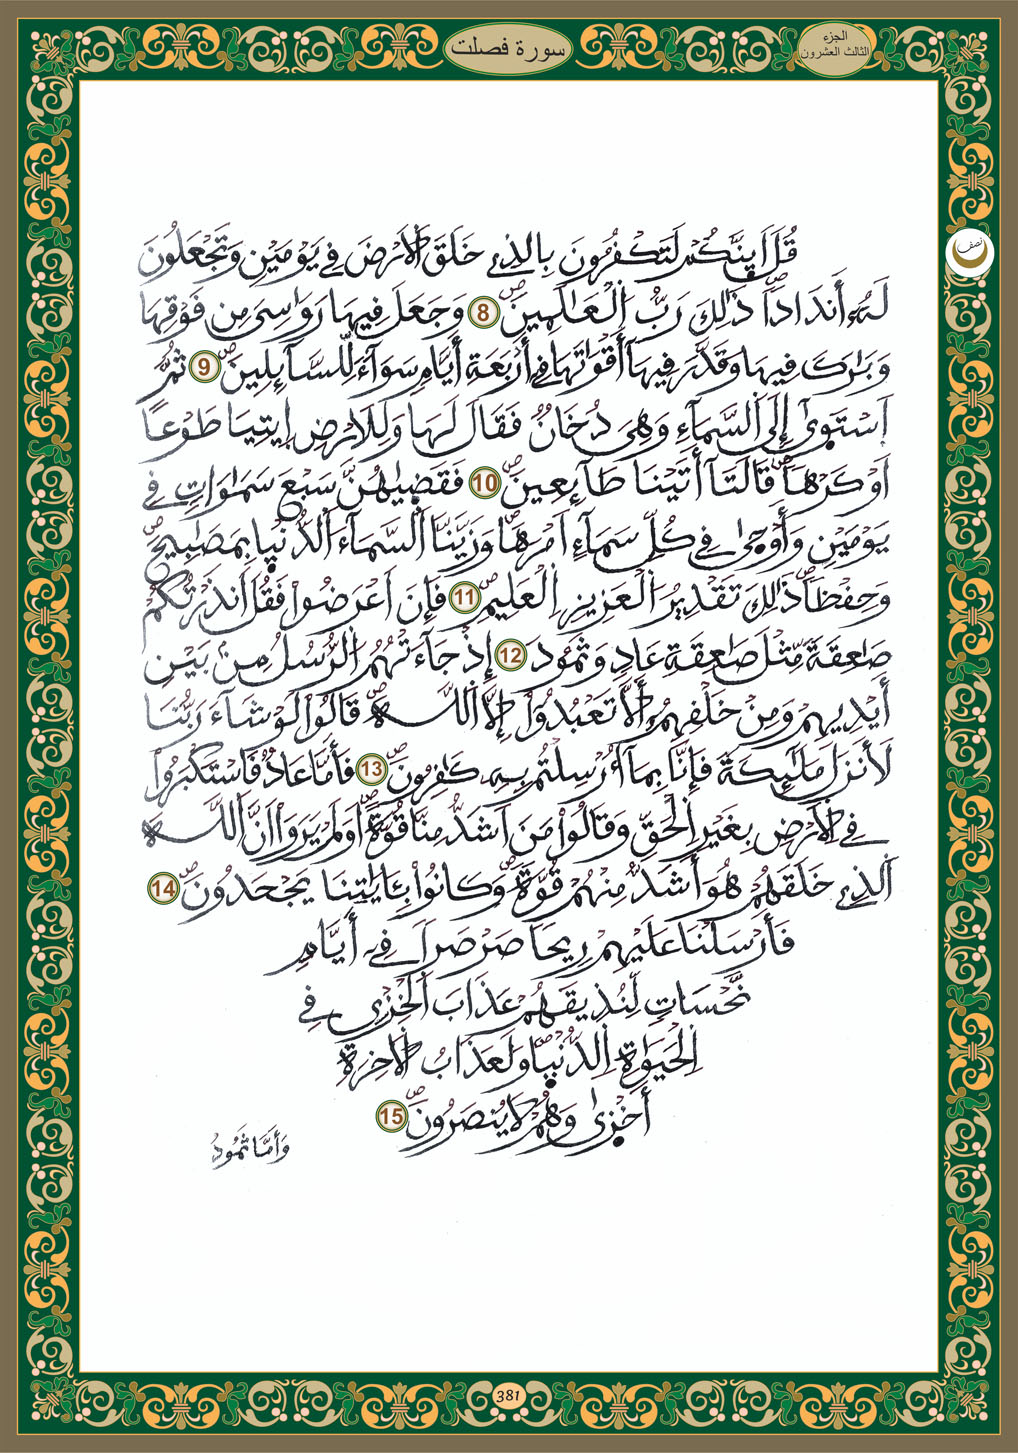 سورة فصلت
الجزء
الثالث العشرون
نصف
قُلَ اَئِنَّكُمْ لَتَكْفُرُونَ بِالذِے خَلَقَ اَلَارْضَ فِے يَوْمَيْنِ وَتَجْعَلُونَ
لَهُۥ أَندَاداٗ ذَٰلِكَ رَبُّ اُلْعَٰلَمِينَ 8 وَجَعَلَ فِيهَا رَوَٰسِيَ مِن فَوْقِهَا
وَبَٰرَكَ فِيهَا وَقَدَّرَ فِيهَآ أَقْوَٰتَهَا فِےٓ أَرْبَعَةِ أَيَّامٖ سَوَآءٗ لِّلسَّآئِلِينَ 9 ثُمَّ
اَسْتَوَىٰٓ إِلَى اَلسَّمَآءِ وَهِيَ دُخَانٞ فَقَالَ لَهَا وَلِلَارْضِ اِيتِيَا طَوْعاً
اَوْ كَرْهاٗ قَالَتَآ أَتَيْنَا طَآئِعِينَ 10 فَقَضَيٰهُنَّ سَبْعَ سَمَٰوَاتٖ فِے
يَوْمَيْنِ وَأَوْحَىٰ فِے كُلِّ سَمَآءٍ اَمْرَهَا وَزَيَّنَّا اَلسَّمَآءَ اَلدُّنْيَا بِمَصَٰبِيحَ
وَحِفْظاٗ ذَٰلِكَ تَقْدِيرُ اُلْعَزِيزِ اِلْعَلِيمِ 11 فَإِنَ اَعْرَضُواْ فَقُلَ اَنذَرْتُكُمْ
صَٰعِقَةٗ مِّثْلَ صَٰعِقَةِ عَادٖ وَثَمُودَ 12 إِذْ جَآءَتْهُمُ اُلرُّسُلُ مِنۢ بَيْنِ
أَيْدِيهِمْ وَمِنْ خَلْفِهِمُۥٓ أَلَّا تَعْبُدُوٓاْ إِلَّا اَللَّهَ قَالُواْ لَوْ شَآءَ رَبُّنَا
لَأَنزَلَ مَلَٰٓئِكَةٗ فَإِنَّا بِمَآ أُرْسِلْتُم بِهِۦ كَٰفِرُونَ 13 فَأَمَّا عَادٞ فَاسْتَكْبَرُواْ
فِے اِلَارْضِ بِغَيْرِ اِلْحَقِّ وَقَالُواْ مَنَ اَشَدُّ مِنَّا قُوَّةًۖ اَوَلَمْ يَرَوَاْ اَنَّ اَللَّهَ
اَلذِے خَلَقَهُمْ هُوَ أَشَدُّ مِنْهُمْ قُوَّةٗ وَكَانُواْ بِـَٔايَٰتِنَا يَجْحَدُونَ 14
فَأَرْسَلْنَا عَلَيْهِمْ رِيحاٗ صَرْصَراٗ فِےٓ أَيَّامٖ
نَّحْسَاتٖ لِّنُذِيقَهُمْ عَذَابَ اَلْخِزْيِ فِے
اِلْحَيَوٰةِ اِلدُّنْيَا وَلَعَذَابُ اُلَاخِرَةِ
أَخْزَىٰ وَهُمْ لَا يُنصَرُونَ 15
وَأَمَّا ثَمُودُ
381